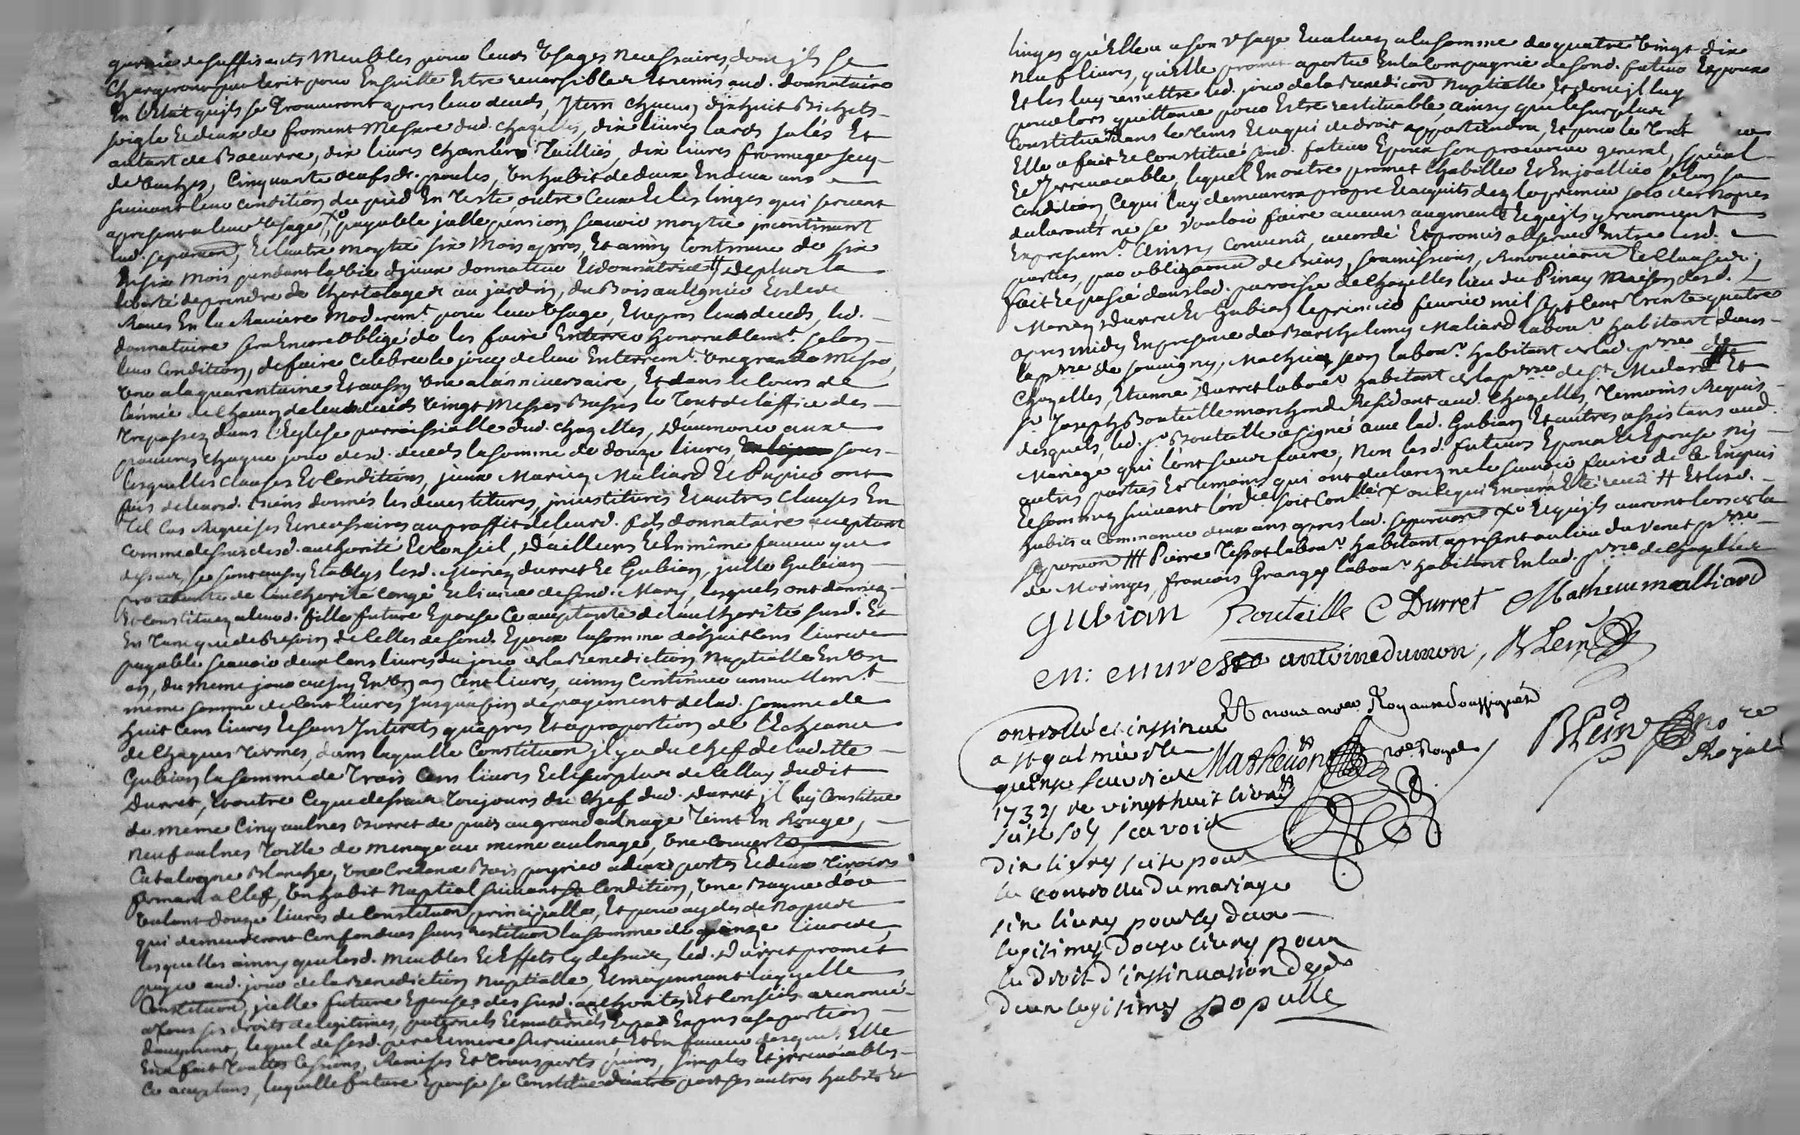 garnie de suffisants Meubles pour leurs usages necessaires dont ils se
chargeront par écrit pour ensuitte estre reversibles et remis aud. donnataire
En l'Estat qu'ils se trouveront apres leur deceds, Item chacun dixhuit Bichets
soigle et deux de froment Mesure dud. chazelles, dix livres lards salés Et
autant de Baeurre, dix livres chambre Tuilliés, dix livres fromage secq
de vaches, Cinquante oeufs de poules, un habit de deux En deux ans
suivant leur condition du pied En Teste outre ceux et les linges qui servent
apresent a leur usage, payable jcelle pension scavoir moytié jncontinant
lad. separaon, Et l'autre moytié six Mois apres, Et ainsy continuer de six
En six mois pendant la vie d'jceux donnateur et donnatrice de plus la
liberté de prendre de l'hortolage au jardin, du Bois au lignier et des
Raves En la Raviere moderemt pour leur usage, Et apres leurs deceds, led.
donnataire sera Encore obligé de les faire Enterrer honorablemt selon
leur condition, de faire celebrer le jour de leur Enterremt une grande Messe,
une a la quarentaine Et aussy une a l'anniversaire, Et dans le cours de
l'année de chacun de leurs deceds vingt Messes Basses le Tout de l'office des
Trepassez dans l'Eglise parroissialle dud. chazelles, d'aumoner aux
pauvres chaque jour desd. deceds la somme de douze livres, sous
lesquelles clauses Et conditions, jceux Mariez Maliard Et Pupier ont
fait de leursd. biens donnés les devestitures, jnvestitures Et autres clauses En
Tel cas Requises Et necessaires au proffit de leurd. fils donnataire acceptant
comme dessus desd. authorité Et conseil, D'ailleurs Et En même faveur que
dessus, se sont aussy Etablys lesd. Mariez durret Et Gubian, jcelle Gubian
procedante de l'authorité congé Et licence de sond. Mary, lesquels ont donné
Et constitué a leurd. fille future Epouse ce acceptante de l'authorité susd. Et
En Tant que de Besoin de celles de sond. Epoux la somme de huit cens livres
payable scavoir deux cens livres du jour de la Benediction Nuptialle En un
an, du meme jour aussy En un an cent livres, ainsy continuer annuellemt
meme somme de cent livres jusqu'a fin de payement de lad. somme de
huit cens livres Et sans Interets qu'apres Et a proportion de l'Echeance
de chaques Termes, dans laquelle Constituon jl y a du chef de ladette
Gubian la somme de Trois Cens livres Et le surplus de celluy dudit
Durret, Et outre ce que dessus Toujours du chef dud. Durret jl luy Constitue
de meme Cinq aulnes Burret de pais au grand aulnage Teint En Rouge,
Neuf aulnes Toille de menage au meme aulnage, une couverte
Catalogne Blanche, une Credance Bois poyrier a deux portes Et deux Tiroirs
fermant a clef, un habit Nuptial suivant sa Condition, une Bague d'or
valant douze livres de Constituon principalle, Et pour aydes de Nopces
qui demeureront confondues sans restituon la somme de quinze livres,
lesquelles ainsy que lesd. meubles Et Effets cy dessus, led. Durret promet
payer aud. jour de la Benediction Nuptialle, Et moyennant laquelle
Constituon, jcelle future Epouse des susd. authorités Et Conseils a renoncé
a Tous ses droits de legitimes, paternels Et maternels Et part En pres a sa portion
d'augment, lequel de sesd. pere Et mere survivent, Et En faveur desquels Elle
En a fait Touttes cessions, Remises Et Transports pures, simples Et jrrevocables
Ce acceptans, laquelle future Epouse se Constitue d'autre part ses autres habits Et
linges qu'Elle a a son usage Evaluez a la somme de quatre vingt dix
Neuf livres, qu'Elle promet aporter En la Compagnie de sond. futur Epoux
Et les luy remettre led. jour de la Benediction Nuptialle Et dont jl luy
pour lors quittance pour Estre restituable, ainsy que le surplus
constitué dans le Tems Et a qui de droit appartiendra, Et pour le Tout
Elle a fait Et Constitué sond. futur Epoux son procureur general, special
Et Jrrevocable, lequel En outre promet l'habiller Et Enjoallier selon sa
Condition, Ce qui luy demeurera propre Et acquits dez le premier jour des Nopces
declarants ne se vouloir faire aucuns augments Et qu'ils y renoncent
Expressemt. Ainsy Convenû, accordé Et promis observer Entre lesd.
parties, par obligaons de Biens, soumissions, Renonciaons Et clauses,
fait Et passé dans lad. parroisse de chazelles lieu du Pinay Maison desd.
Mariez Durret Et Gubian le premier fevrier mil sept cent Trente quatre
apres midy En presence de Barthelemy Maliard labour. habitant dans
la prre de souvigny, Mathieu jean labour. habitant de lad. prre de
Chazelles, Etienne Durret labour habitant de la prre de St. Medard Et
Sr. Joseph Bouteille marchand Residant aud. Chazelles, Temoins Requis
desquels, led. Sr. Bouteille a signé avec lad. Gubian Et autres assistans aud.
Mariage qui l'ont sceut faire, Non lesd. futurs Epoux Et Epouse Ni
autres parties Et temoins qui ont declarez ne le scavoir faire de ce Enquis
Et sommez suivant l'ordce. soit Conllé
habits a Commencer deux ans apres lad. separaon Et qu'ils auront lors de la
separaon Pierre Tissot labour. habitant apresent au lieu du Veret prre
de Moringes, françois Granges labour habitant En lad. prre de chazelles
Gubian Bouteille C Durret Matheumalliard
M: Mure antoinedumon, Blein
Et nous nore. Royaux soussignés
Controllé et insinué
a st galmier le
quinze fevrier Mathevon nore Royal Blein nore Royal
1734 re vingt huit livres
seise sols scavoir
dix livres seise pour
le controlle du mariage
six livres pour les deux
legitimes douze livres pour
le droit d'insinuation desd.
deux legitimes populle